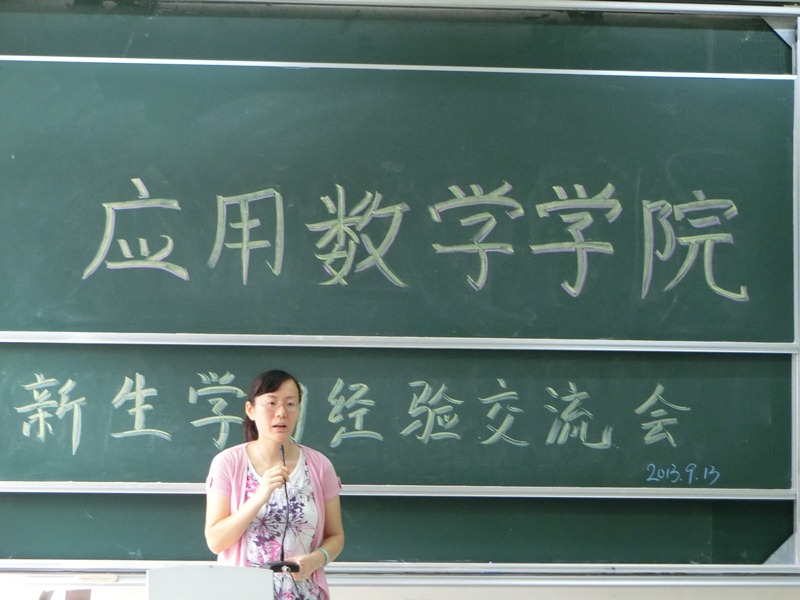 应用数学学院
新生学 经验交流会
2013.9.13